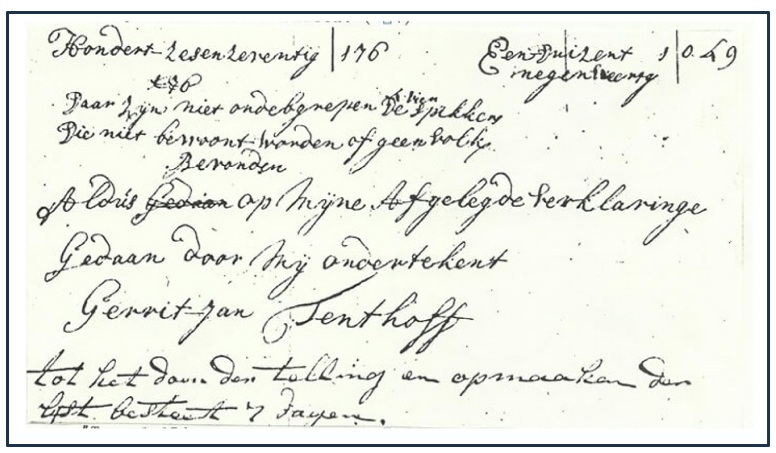 Hondert zesenzeventig | 176 Een duizent 1 | 0.49
negenveertig
176
Daar zijn niet onde begrepen De Spikken
Die niet bewoont worden of geen volk
Bevonden
Aldús Gedaan op Mijne Afgelegde verklaringe
Gedaan door Mij ondertekent
Gerrit Jan Tenthoff
tot het doen der telling en opmaaken der
lyst besteet 7 dagen.